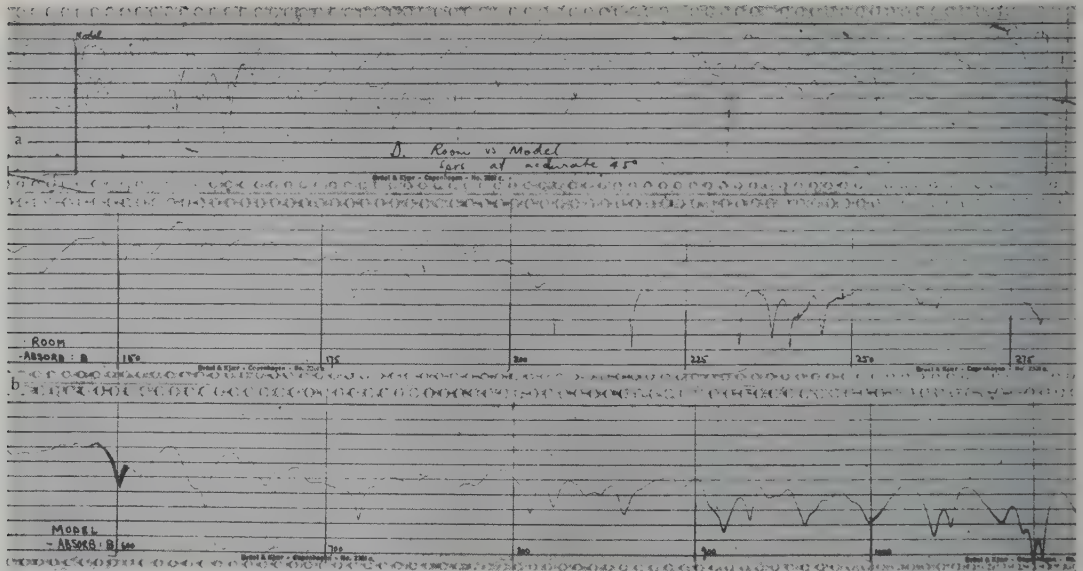 Model
a
D. Room vs Model
at accurate 45°
Brüel & Kjær - Copenhagen - No.
ROOM
-ABSORB : B 150 175 200 225 250 275
Brüel & Kjær - Copenhagen - No.
Brüel & Kjær - Copenhagen - No.
b
MODEL
- ABSORB : B 600 700 800 900 1000
Brüel & Kjær - Copenhagen - No.
Brüel & Kjær - Copenhagen - No.
Brüel & Kjær - Copenhagen - No.